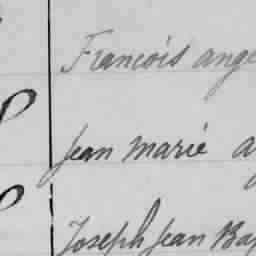 Francois ange
Jean marie a
Joseph Jean Bap